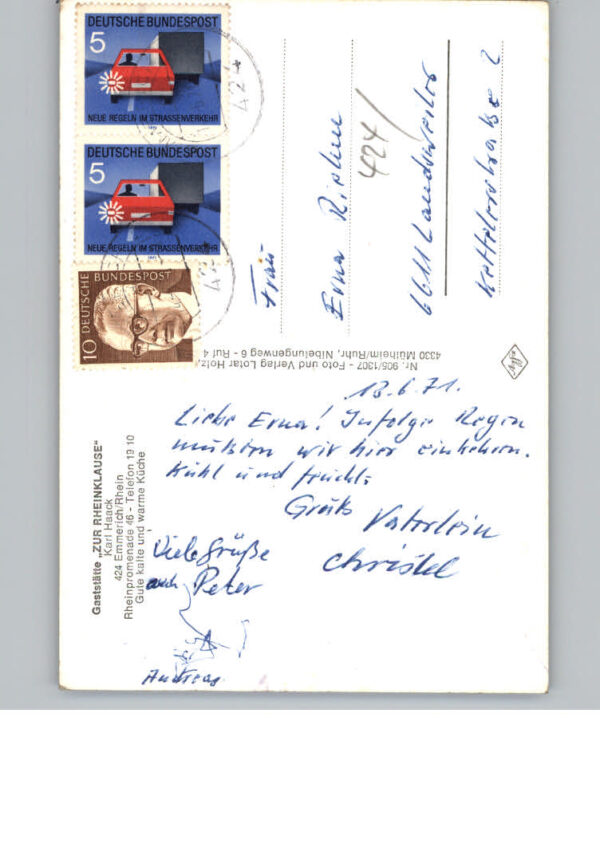 DEUTSCHE BUNDESPOST
5
NEUE REGELN IM STRASSENVERKEHR
DEUTSCHE BUNDESPOST
5
NEUE REGELN IM STRASSENVERKEHR
DEUTSCHE BUNDESPOST
10
424
424
Frau
Erna
424/
6611 Landsweiler
2
Nr. 905/1307 - Foto und Verlag Lotar Holz,
4330 Mülheim/Ruhr, Nibelungenweg 6 - Ruf 4
Gaststätte „ZUR RHEINKLAUSE"
Karl Haack
424 Emmerich/Rhein
Rheinpromenade 46 - Telefon 19 10
Gute kalte und warme Küche
13.6.71.
Liebe Erna! Infolge Regen
mußten wir hier einkehren.
Kühl und feucht.
Gruß Vaterlein
Christel
Viele Grüße
auch Peter
Andreas